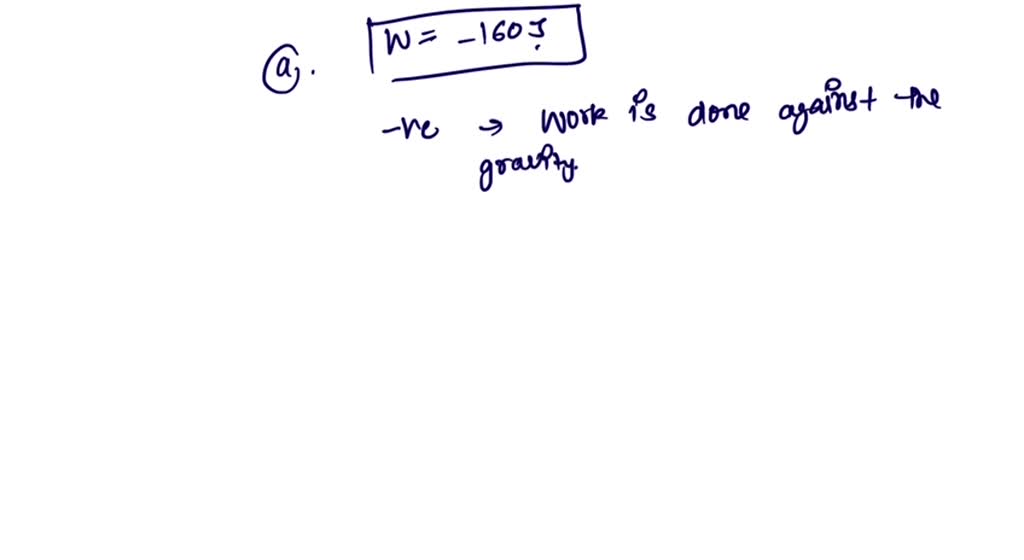 (a). W = -160 J
-ve → Work is done against the
gravity.